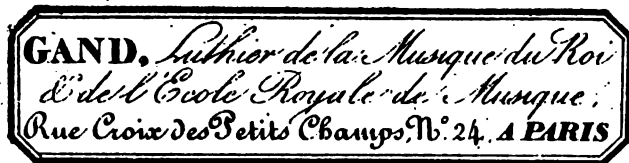 GAND, Luthier de la Musique du Roi
& de l'Ecole Royale de Musique,
Rue Croix des Petits Champs, N.º 24. A PARIS